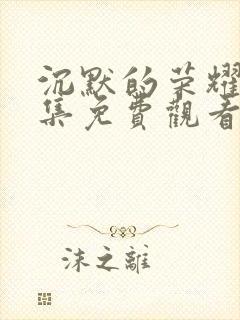 沉默的荣耀
集免費觀看
沫之離